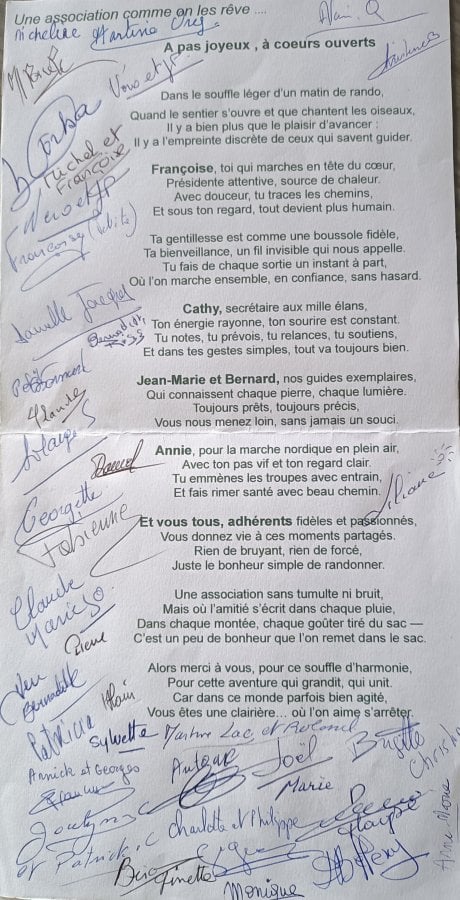 Une association comme on les rêve ....
Alain. Q
Micheline Martine
A pas joyeux , à coeurs ouverts
Véro et JP
Dans le souffle léger d'un matin de rando,
Quand le sentier s'ouvre et que chantent les oiseaux,
Il y a bien plus que le plaisir d'avancer :
Il y a l'empreinte discrète de ceux qui savent guider.
Michel et
Françoise
Françoise, toi qui marches en tête du cœur,
Présidente attentive, source de chaleur.
Avec douceur, tu traces les chemins,
Et sous ton regard, tout devient plus humain.
Françoise
Ta gentillesse est comme une boussole fidèle,
Ta bienveillance, un fil invisible qui nous appelle.
Tu fais de chaque sortie un instant à part,
Où l'on marche ensemble, en confiance, sans hasard.
Danielle Jacques
Cathy, secrétaire aux mille élans,
Ton énergie rayonne, ton sourire est constant.
Tu notes, tu prévois, tu relances, tu soutiens,
Et dans tes gestes simples, tout va toujours bien.
Jean-Marie et Bernard, nos guides exemplaires,
Qui connaissent chaque pierre, chaque lumière.
Toujours prêts, toujours précis,
Vous nous menez loin, sans jamais un souci.
Claude
Solange
Daniel
Annie, pour la marche nordique en plein air,
Avec ton pas vif et ton regard clair.
Tu emmènes les troupes avec entrain,
Et fais rimer santé avec beau chemin.
Liliane
Georgette
Fabienne
Et vous tous, adhérents fidèles et passionnés,
Vous donnez vie à ces moments partagés.
Rien de bruyant, rien de forcé,
Juste le bonheur simple de randonner.
Claude
Pierre
Une association sans tumulte ni bruit,
Mais où l'amitié s'écrit dans chaque pluie,
Dans chaque montée, chaque goûter tiré du sac —
C'est un peu de bonheur que l'on remet dans le sac.
Bernadette
Alain
Alors merci à vous, pour ce souffle d'harmonie,
Pour cette aventure qui grandit, qui unit.
Car dans ce monde parfois bien agité,
Vous êtes une clairière… où l'on aime s'arrêter.
Patricia
Sylvette
Joël
Brigitte
Annick et Georges
Marie
Charlotte et Philippe
et Patrick. C
Ginette
Monique